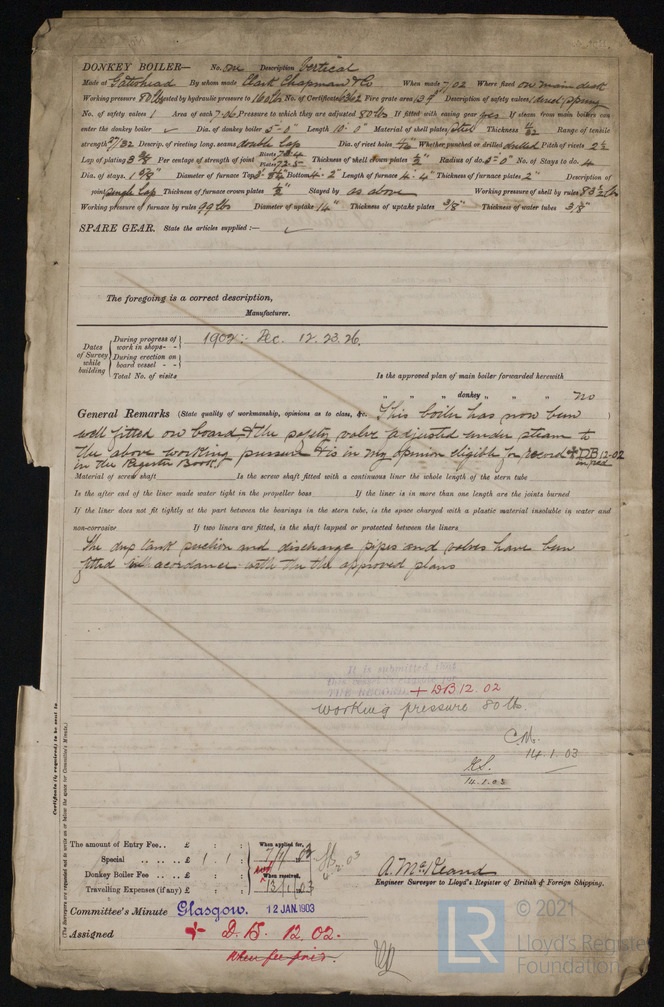 DONKEY BOILER— No. one Description Vertical
Made at Gateshead By whom made Clark Chapman & Co When made 7/02 Where fixed on main deck
Working pressure 80 lbs tested by hydraulic pressure to 160 lbs No. of Certificate Fire grate area 13.9 Description of safety valves direct spring
No. of safety valves 1 Area of each 7.06 Pressure to which they are adjusted 80 lbs If fitted with easing gear yes If steam from main boilers can
enter the donkey boiler ✓ Dia. of donkey boiler 5'-0" Length 10'-0" Material of shell plates Steel Thickness 11/32 Range of tensile
strength 27/32 Descrip. of riveting long. seams double lap Dia. of rivet holes Whether punched or drilled drilled Pitch of rivets 2½
Lap of plating 3⅜ Per centage of strength of joint Rivets 73.4 Plates 72.5 Thickness of shell crown plates ½" Radius of do. 5'-0" No. of Stays to do. 4
Dia. of stays. 1⅝" Diameter of furnace Top Bottom 4'-2" Length of furnace 4'-4" Thickness of furnace plates Description of
joint single lap Thickness of furnace crown plates ½" Stayed by as above Working pressure of shell by rules 83½ lbs
Working pressure of furnace by rules 99 lbs Diameter of uptake 14" Thickness of uptake plates 3/8" Thickness of water tubes 3/8"
SPARE GEAR. State the articles supplied :— ✓
The foregoing is a correct description,
Manufacturer.
Dates of Survey while building
During progress of work in shops - - 1902:- Dec. 12. 23. 26.
During erection on board vessel - -
Total No. of visits Is the approved plan of main boiler forwarded herewith
" " " donkey " " " no
General Remarks (State quality of workmanship, opinions as to class, &c. This boiler has now been )
well fitted on board & the safety valve adjusted under steam to
the above working pressure & is in my opinion eligible for record + DB 12-02
in red
in the Register Book
Material of screw shaft Is the screw shaft fitted with a continuous liner the whole length of the stern tube
Is the after end of the liner made water tight in the propeller boss If the liner is in more than one length are the joints burned
If the liner does not fit tightly at the part between the bearings in the stern tube, is the space charged with a plastic material insoluble in water and
non-corrosive If two liners are fitted, is the shaft lapped or protected between the liners
The suction and discharge pipes and valves have been
fitted in acordance with the approved plans
It is submitted that
this vessel is eligible for
THE RECORD. + DB 12.02
working pressure 80 lb.
C.M.
14.1.03
14.1.03
Certificate (if required) to be sent to
(The Surveyors are requested not to write on or below the space for Committee's Minute.)
The amount of Entry Fee . . £ : : When applied for,
Special . . . . . £ 1 : 1 :
Donkey Boiler Fee . . . £ : : When received,
Travelling Expenses (if any) £ : : 13/1/03
A. McKeand
Engineer Surveyor to Lloyd's Register of British & Foreign Shipping.
Committee's Minute Glasgow. 12 JAN. 1903
Assigned + D.B. 12.02.
When fee paid.
LR
© 2021
Lloyd's Register
Foundation